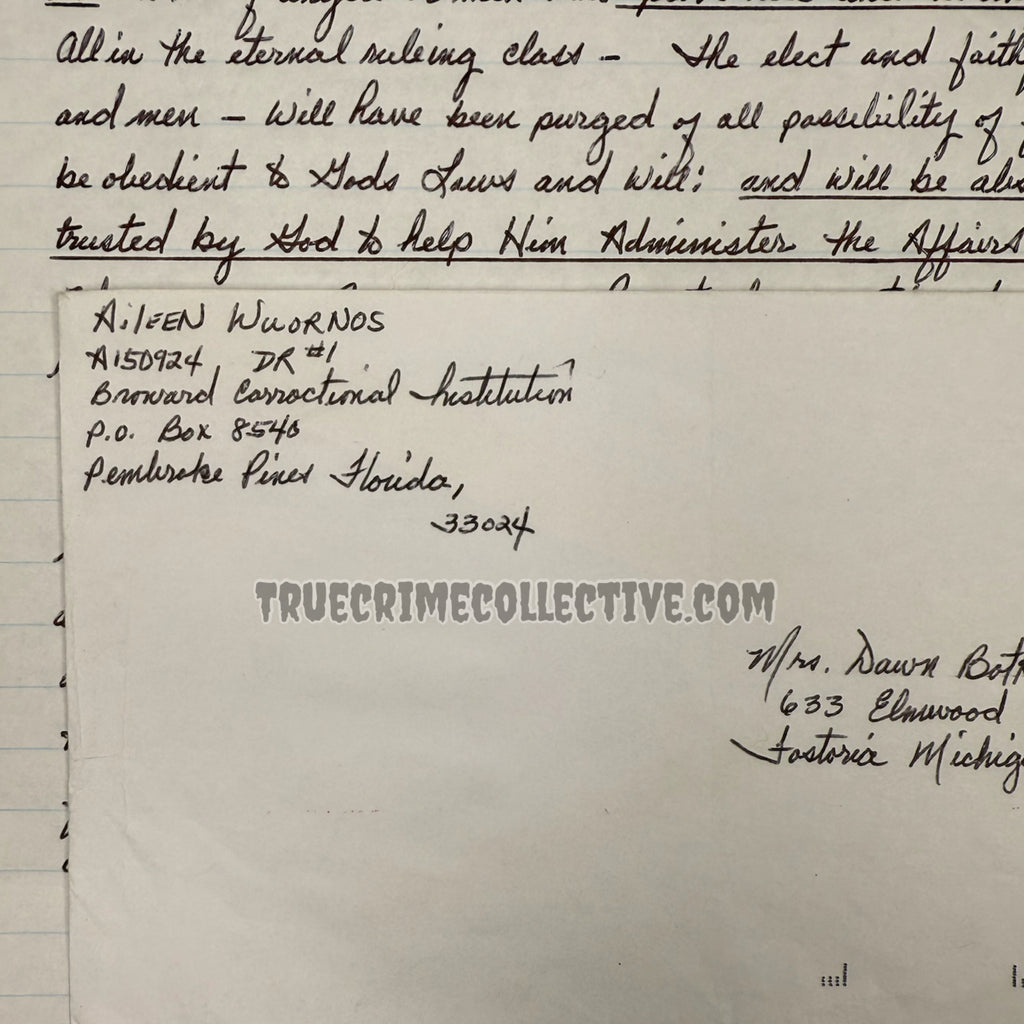 All in the eternal ruleing class - The elect and
and men - Will have been purged of all possibility of
be obedient to Gods Laws and Will: and will be
trusted by God to help Him Administer the Affairs
AiLEEN WUORNOS
A150924 DR #1
Broward Corractional Institution
P.O. Box 8540
Pembroke Pines Florida,
33024
TRUECRIMECOLLECTIVE.COM
Mrs. Dawn
633 Elmwood
Fostoria